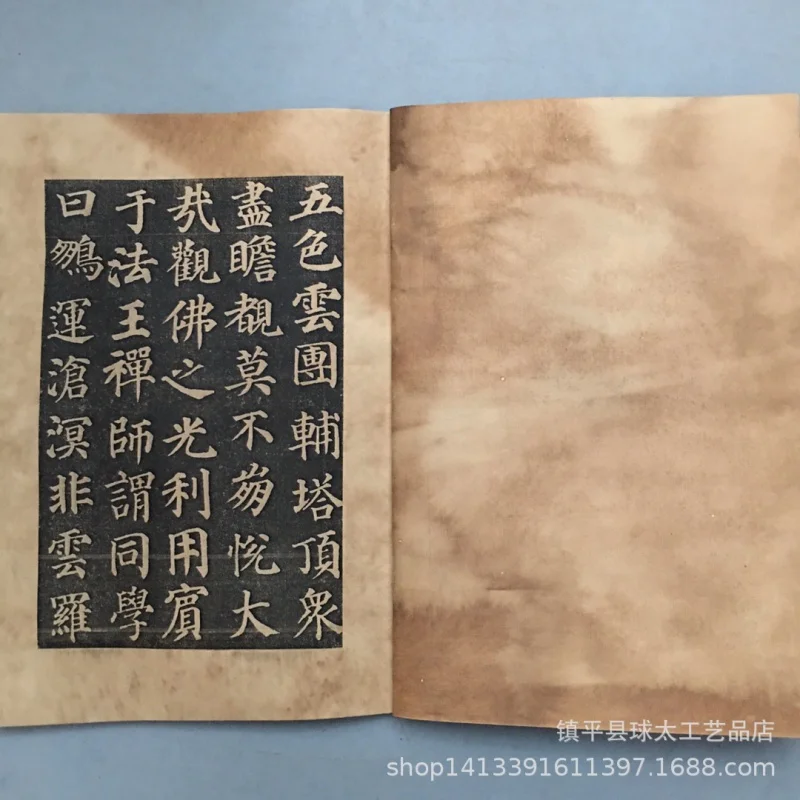 五色雲團輔塔頂衆
盡瞻覩莫不崩悅大
哉觀佛之光利用賓
于法王禪師謂同學
曰鵬運滄溟非雲羅
镇平县球太工艺品店
shop1413391611397.1688.com